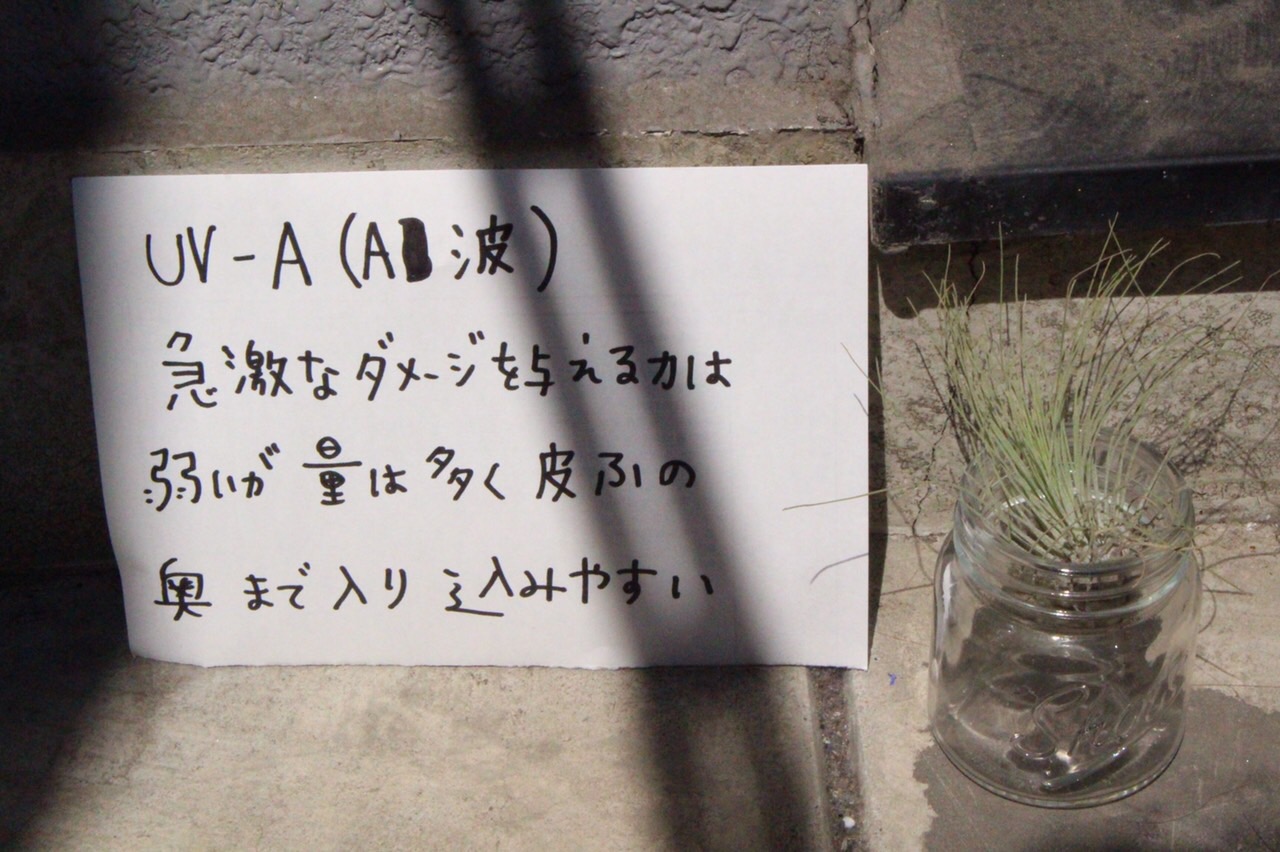 UV-A (A波)
急激なダメージを与える力は
弱いが量は多く皮ふの
奥まで入り込みやすい